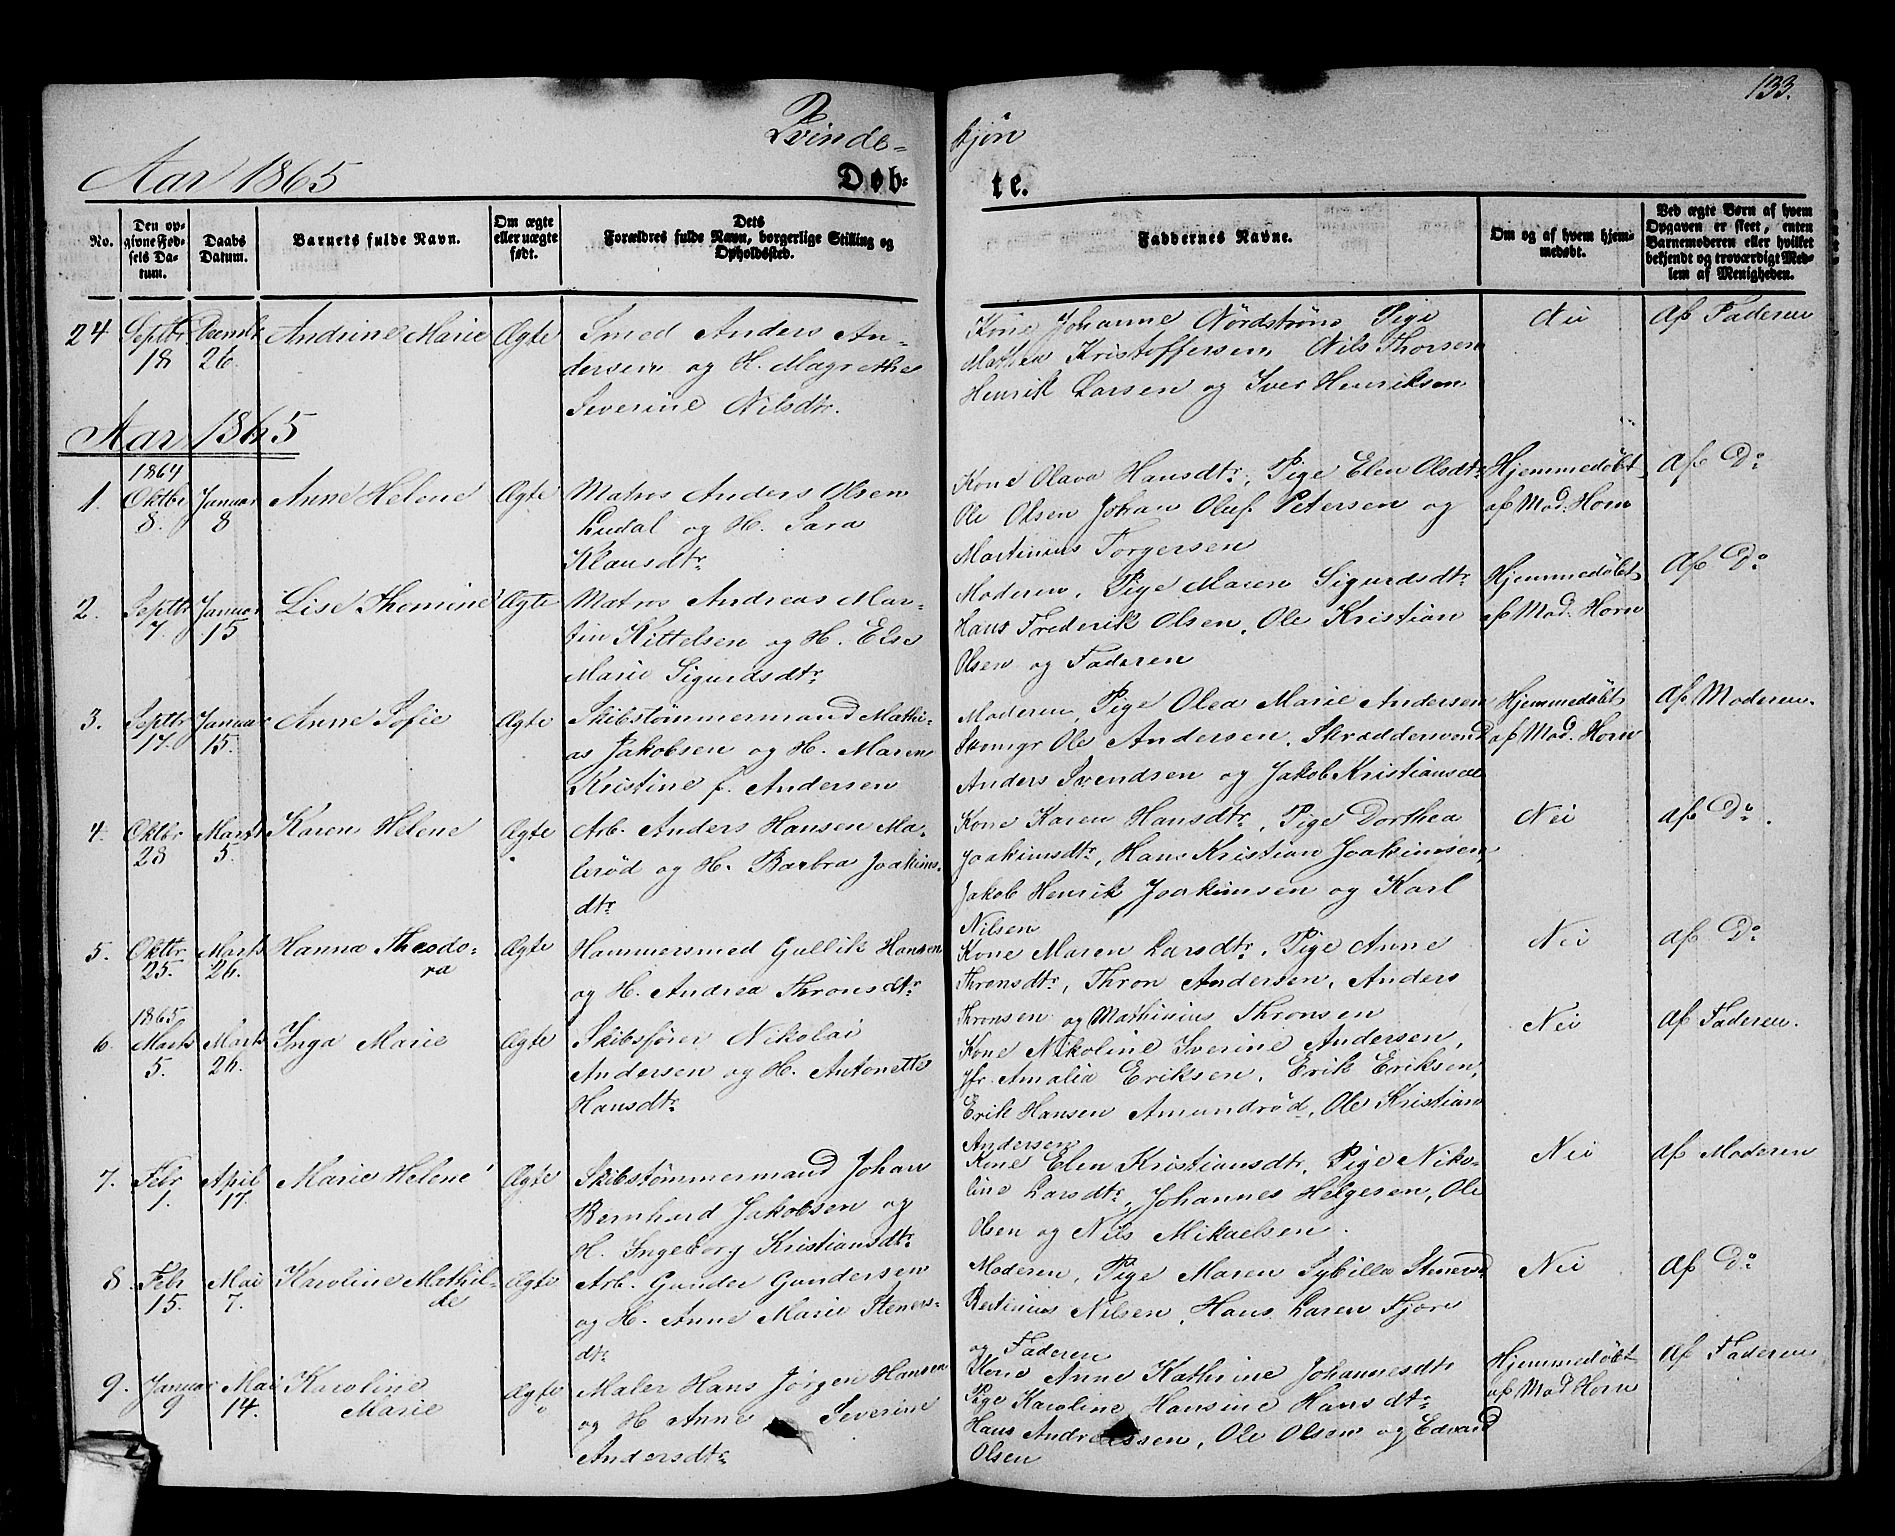 133.
Qvinde- kjøn
Aar 1865
Døb- te.
No.
Den op-
givne Fød-
sels Da-
tum.
Daabs
Datum.
Barnets fulde Navn.
Om ægte
eller uægte
født.
Dets
Forældres fulde Navn, borgerlige Stilling og
Opholdssted.
Faddernes Navne.
Om og af hvem hjem-
medøbt.
Ved ægte Børn af hvem
Opgaven er skeet, enten
Barnemoderen eller hvilket
bekjendt og troværdigt Med-
lem af Menigheden.
24 Septbr 18 Decmbr 26. Andrine Marie Ægte
Smed Anders An-
dersen og H. Magrethe
Severine Nilsdtr.
Kone Johanne Nordstrøm, Pige
Mathea Kristoffersen, Nils Thorsen
Henrik Larsen og Iver Henriksen
Nei
Af Faderen
Aar 1865
1. 1864 Oktbr 8. Januar 8 Anne Helene Ægte
Matros Anders Olsen
Ludal og H. Sara
Klausdtr.
Kone Olava Hansdtr, Pige Elen Olsdtr
Ole Olsen Johan Oluf Petersen og
Martinius Torgersen
Hjemmedøbt
af Mad. Horn
Af Do
2. Septbr 7. Januar 15 Lise Thomine Ægte
Matros Andreas Mar-
tin Kittelsen og H. Else
Marie Sigurdsdtr.
Moderen, Pige Maren Sigurdsdtr
Hans Frederik Olsen, Ole Kristian
Olsen og Faderen
Hjemmedøbt
af Mod. Horn
Af Do
3. Septbr 17. Januar 15. Anne Sofie Ægte
Skibstømmermand Mathi-
as Jakobsen og H. Maren
Kristine f. Andersen
Moderen, Pige Olea Marie Andersen
Ole Andersen, Skræddersvend
Anders Svendsen og Jakob Kristiansen
Hjemmedøbt
af Mad. Horn
Af Moderen.
4. Oktbr 28 Marts 5. Karen Helene Ægte
Arb. Anders Hansen Ma-
lerød og H. Barbra Joakims-
dtr.
Kone Karen Hansdtr, Pige Dorthea
Joakimsdtr, Hans Kristian Joakimsen,
Jakob Henrik Joakimsen og Karl
Nilsen
Nei
Af Do.
5. Oktbr 25. Marts 26. Hanna Theodo-
ra Ægte
Hammersmed Gullik Hansen
og H. Andrea Thronsdtr
Kone Maren Larsdtr, Pige Anne
Thronsdtr, Thron Andersen, Anders
Thronsen og Mathinius Thronsen
Nei
Af Do
6. 1865 Marts 5. Marts 26. Inga Marie Ægte
Skibsfører Nikolai
Andersen og H. Antonette
Hansdtr.
Kone Nikoline Iverine Andersen,
Jfr. Amalia Eriksen, Erik Eriksen,
Erik Hansen Amundrød, Ole Kristian
Andersen
Nei
Af Faderen.
7. Febr 1. April 17. Marie Helene Ægte
Skibstømmermand Johan
Bernhard Jakobsen og
H. Ingeborg Kristiansdtr.
Kone Elen Kristiansdtr, Pige Niko-
line Larsdtr, Johannes Helgesen, Ole
Olsen og Nils Mikaelsen.
Nei
Af Moderen
8. Febr 15. Mai 7. Karoline Mathil-
de Ægte
Arb. Gunder Gundersen
og H. Anne Marie Steners-
dtr.
Moderen, Pige Maren Sybilla Stenersd
Bertinius Nilsen, Hans Laren Fjøre
og Faderen
Nei
Af Do
9. Januar 9 Mai 14. Karoline
Marie Ægte
Maler Hans Jørgen Hansen
og H Anne Severine
Andersdtr.
Kone Anne Kathrine Johannesdtr
Pige Karoline Hansine Hansdtr.
Hans Andreassen, Ole Olsen og Edvard
Olsen
Hjemmedøbt
af Mad Horn
Af Faderen